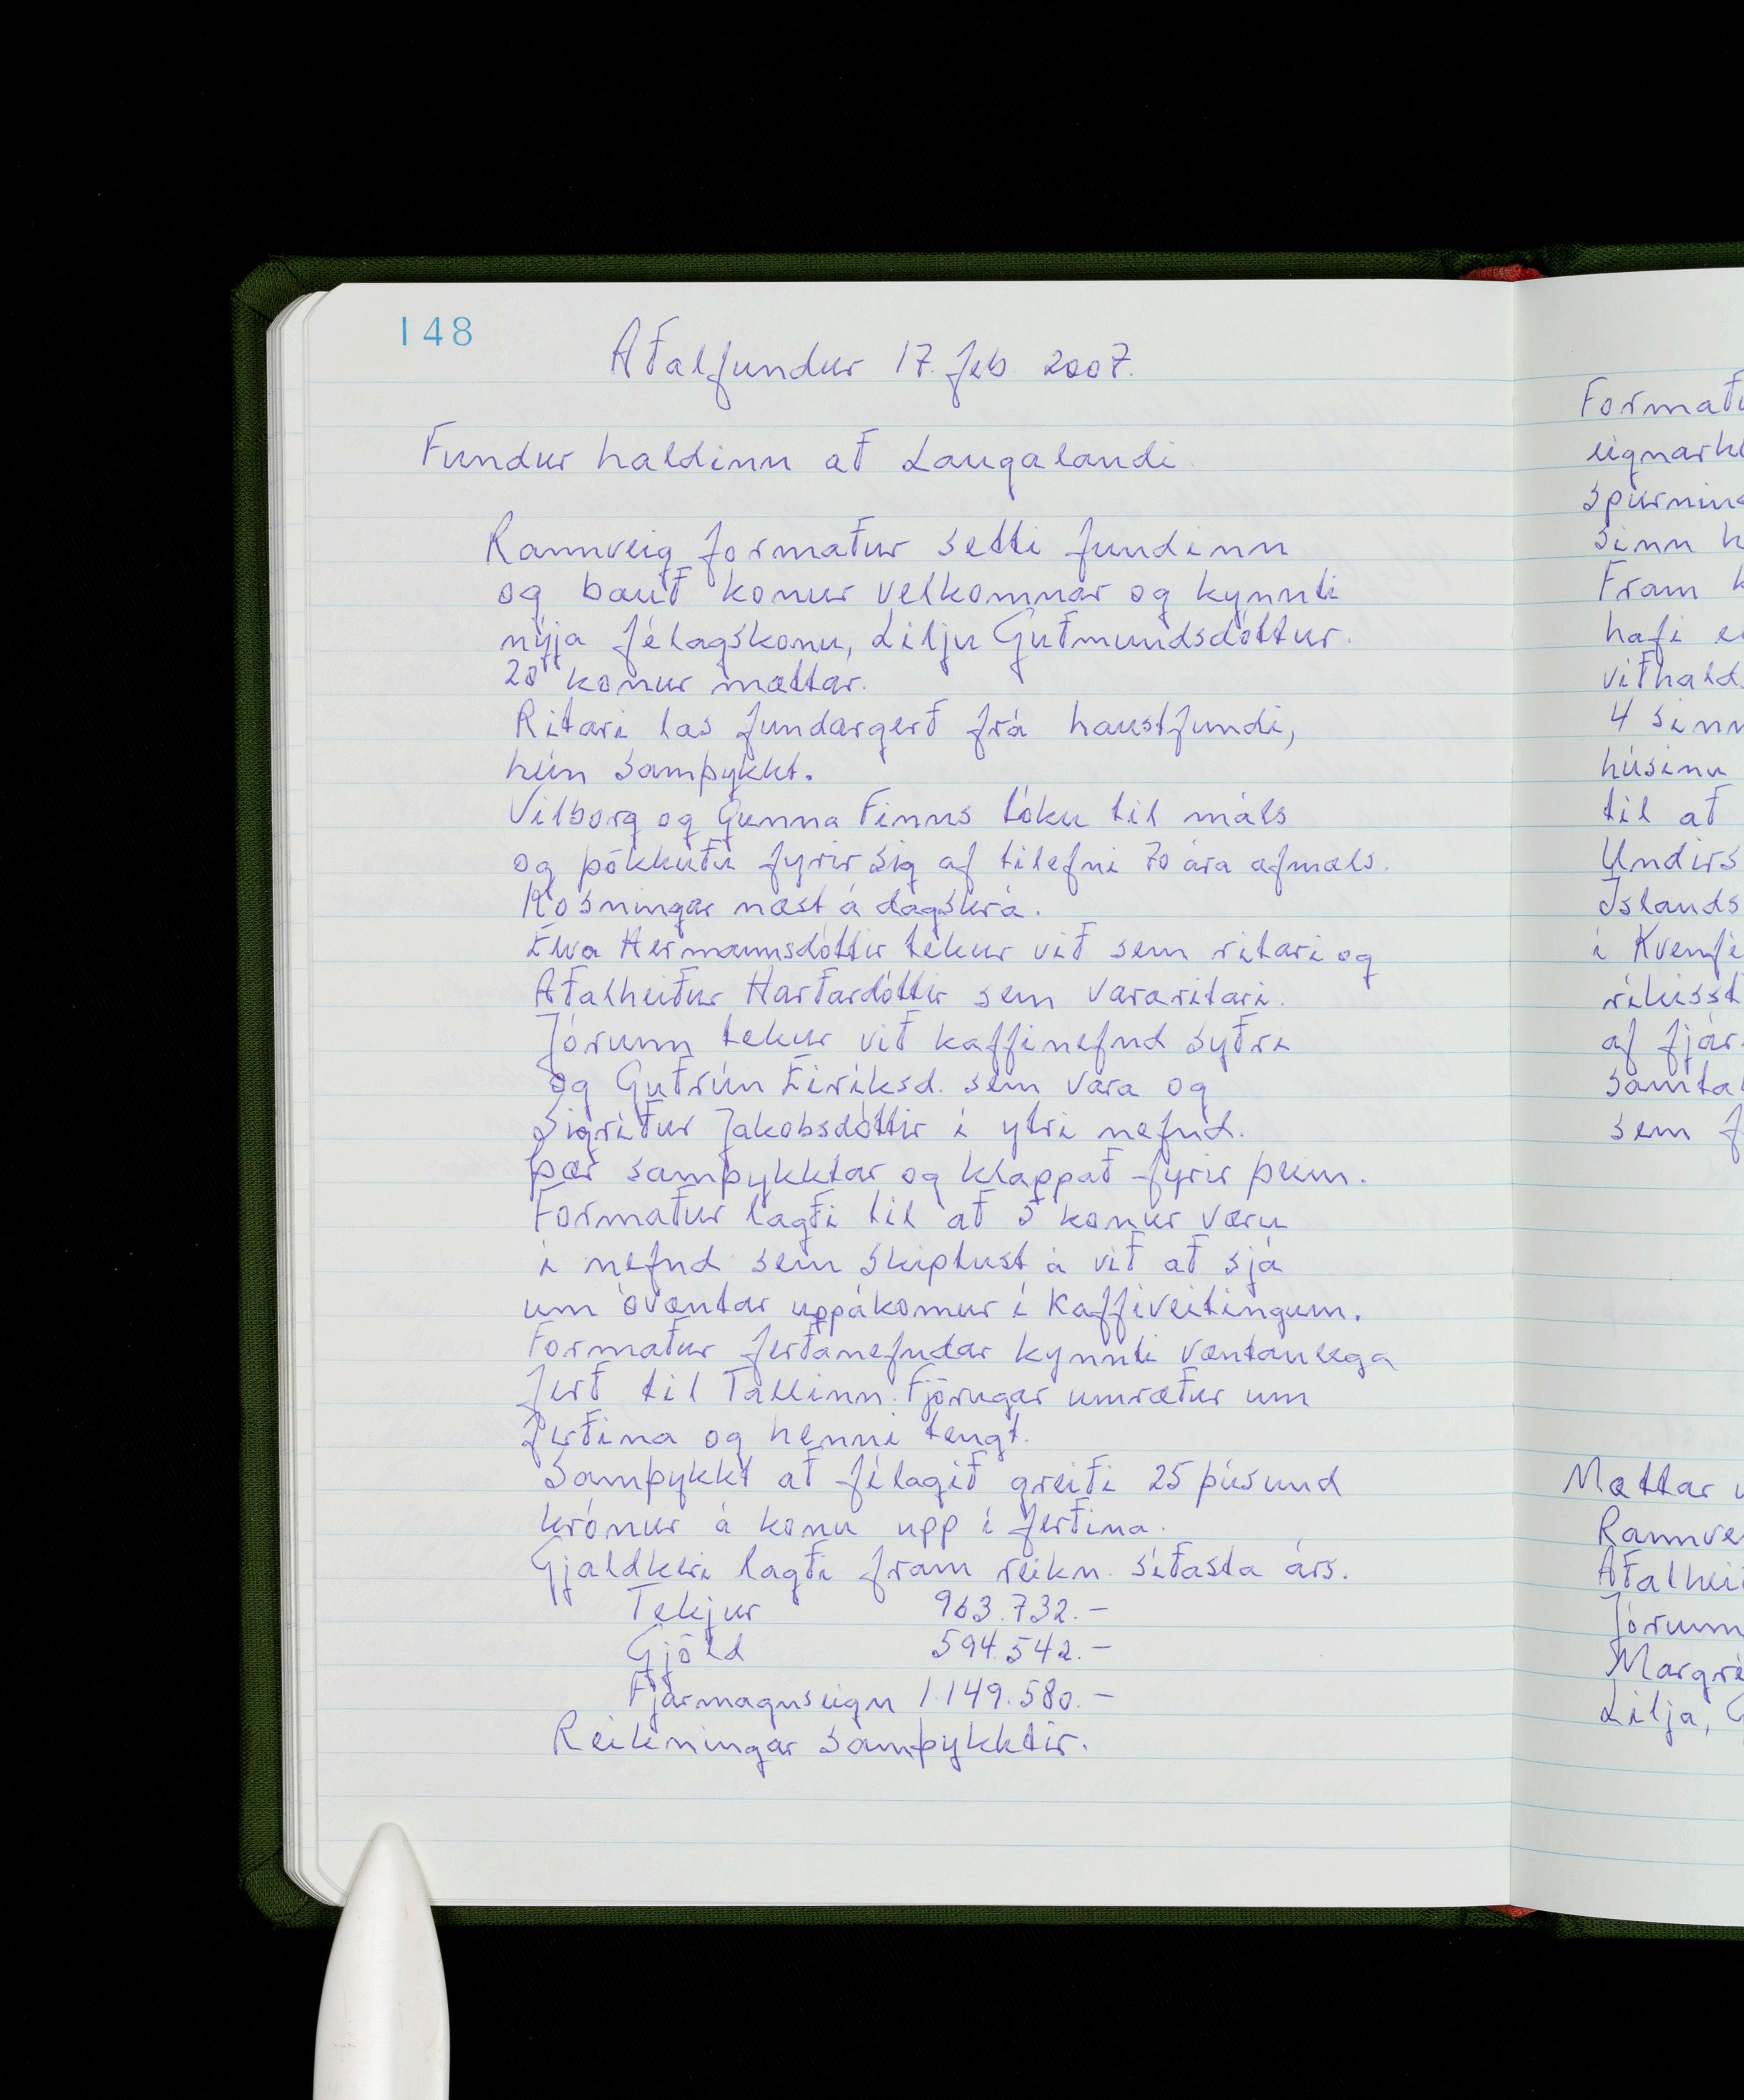 148
Aðalfundur 17. feb. 2007.
Fundur haldinn að Laugalandi.
Rannveig formaður setti fundinn
og bauð konur velkomnar og kynnti
nýja félagskonu, Lilju Guðmundsdóttur.
20 konur mættar.
Ritari las fundargerð frá haustfundi,
hún samþykkt.
Vilborg og Gunna Finns tóku til máls
og þökkuðu fyrir sig af tilefni 70 ára afmæls.
Kosningar næst á dagskrá.
Elva Hermannsdóttir tekur við sem ritari og
Aðalheiður Harðardóttir sem vararitari.
Jórunn tekur við kaffinefnd syðri
og Guðrún Eiríksd. sem vara og
Sigríður Jakobsdóttir í ytri nefnd.
Þær samþykktar og klappað fyrir þeim.
Formaður lagði til að 5 konur væru
í nefnd sem skiptust á við að sjá
um óvæntar uppákomur í kaffiveitingum.
Formaður ferðanefndar kynnti væntanlega
ferð til Tallinn. Fjörugar umræður um
ferðina og henni tengt.
Samþykkt að félagið greiði 25 þúsund
krónur á konu upp í ferðina.
Gjaldkeri lagði fram reikn. síðasta árs.
Tekjur 963.732.-
Gjöld 594.542.-
Fjármagnseign 1.149.580.-
Reikningar samþykktir.
Formaðu
eignarhl
spurning
sinn h
Fram h
hafi e
viðhalds
4 sinn
húsinu
til að
Undirs
Íslands
í Kvenfé
ríkisst
af fjár
samtal
sem f
Mættar v
Rannve
Aðalhei
Jórunn
Margré
Lilja, G